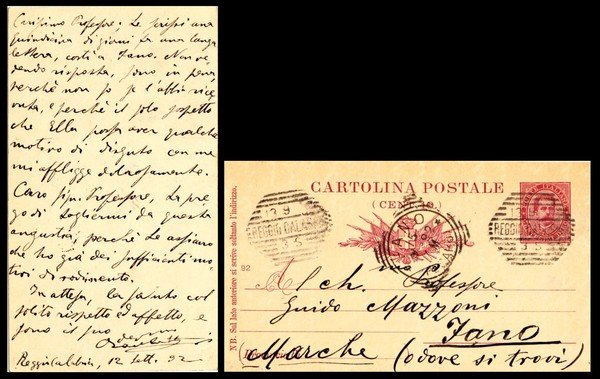 Carissimo Professore; Le scrissi una
quindicina di giorni fa una lunga
lettera, costì a Fano. Non ve-
dendo risposta, sono in pena,
perchè non so se l'abbia rice-
vuta, e perchè il solo sospetto
che Ella possa aver qualche
motivo di disgusto con me
mi affligge dolorosamente.
Caro sig. Professore, La pre-
go di togliermi da questa
angustia; perchè Le assicuro
che ho già dei sufficienti mo-
tivi di
In attesa, La saluto col
solito rispetto ed affetto, e
sono il suo
Reggio Calabria, 12 sett. 92
CARTOLINA POSTALE
(CENT. 10.)
REGGIO CALABRIA
FANO
92
NB. Sul lato anteriore si scrive soltanto l'indirizzo.
Al ch. Professore
Guido Mazzoni
Fano
(Marche) (o dove si trovi)